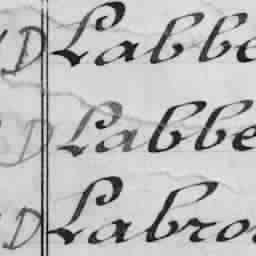 D Labbe
D Labbe
D Labro